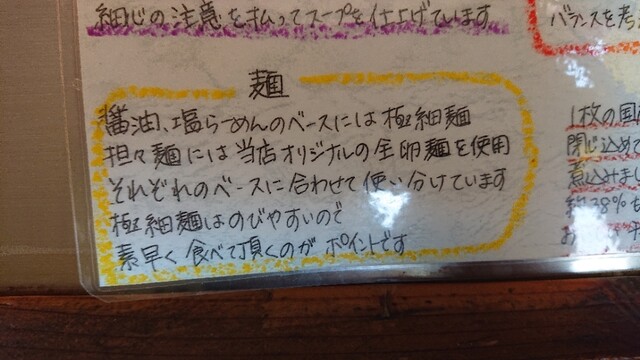 細心の注意を払ってスープを仕上げています
麺
醤油、塩らーめんのベースには極細麺
担々麺には当店オリジナルの全卵麺を使用
それぞれのベースに合わせて使い分けています
極細麺はのびやすいので
素早く食べて頂くのがポイントです
バランスを考
1枚の国
閉じ込めて
煮込みまし
約38%